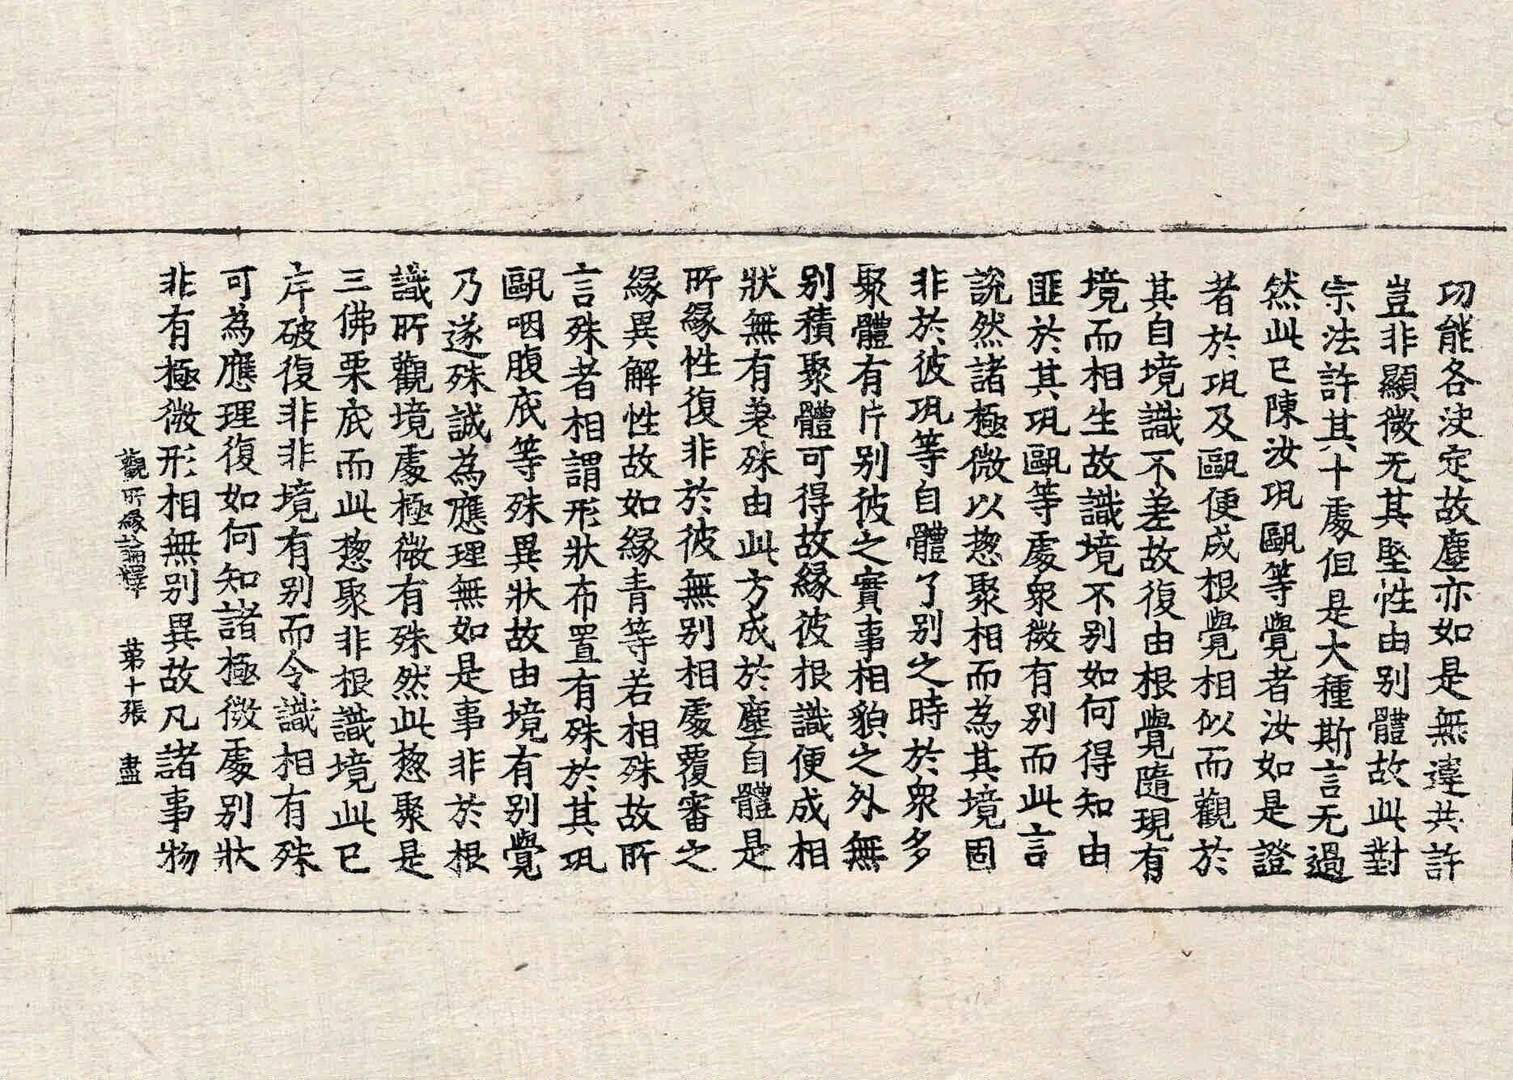 功能各決定故塵亦如是無違共許
豈非顯微无其堅性由別體故此對
宗法許其十處但是大種斯言无過
然此已陳汝㼚甌等覺者汝如是證
者於㼚及甌便成根覺相似而觀於
其自境識不差故復由根覺隨現有
境而相生故識境不別如何得知由
匪於其㼚甌等處衆微有別而此言
說然諸極微以惣聚相而為其境固
非於彼㼚等自體了別之時於衆多
聚體有片別彼之實事相貌之外無
別積聚體可得故緣彼根識便成相
狀無有差殊由此方成於塵自體是
所緣性復非於彼無別相處覆審之
緣異解性故如緣青等若相殊故所
言殊者相謂形狀布置有殊於其㼚
甌咽腹底等殊異狀故由境有別覺
乃遂殊誠為應理無如是事非於根
識所觀境處極微有殊然此惣聚是
三佛栗底而此惣聚非根識境此已
片破復非非境有別而令識相有殊
可為應理復如何知諸極微處別狀
非有極微形相無別異故凡諸事物
觀所緣論釋 第十張 盡